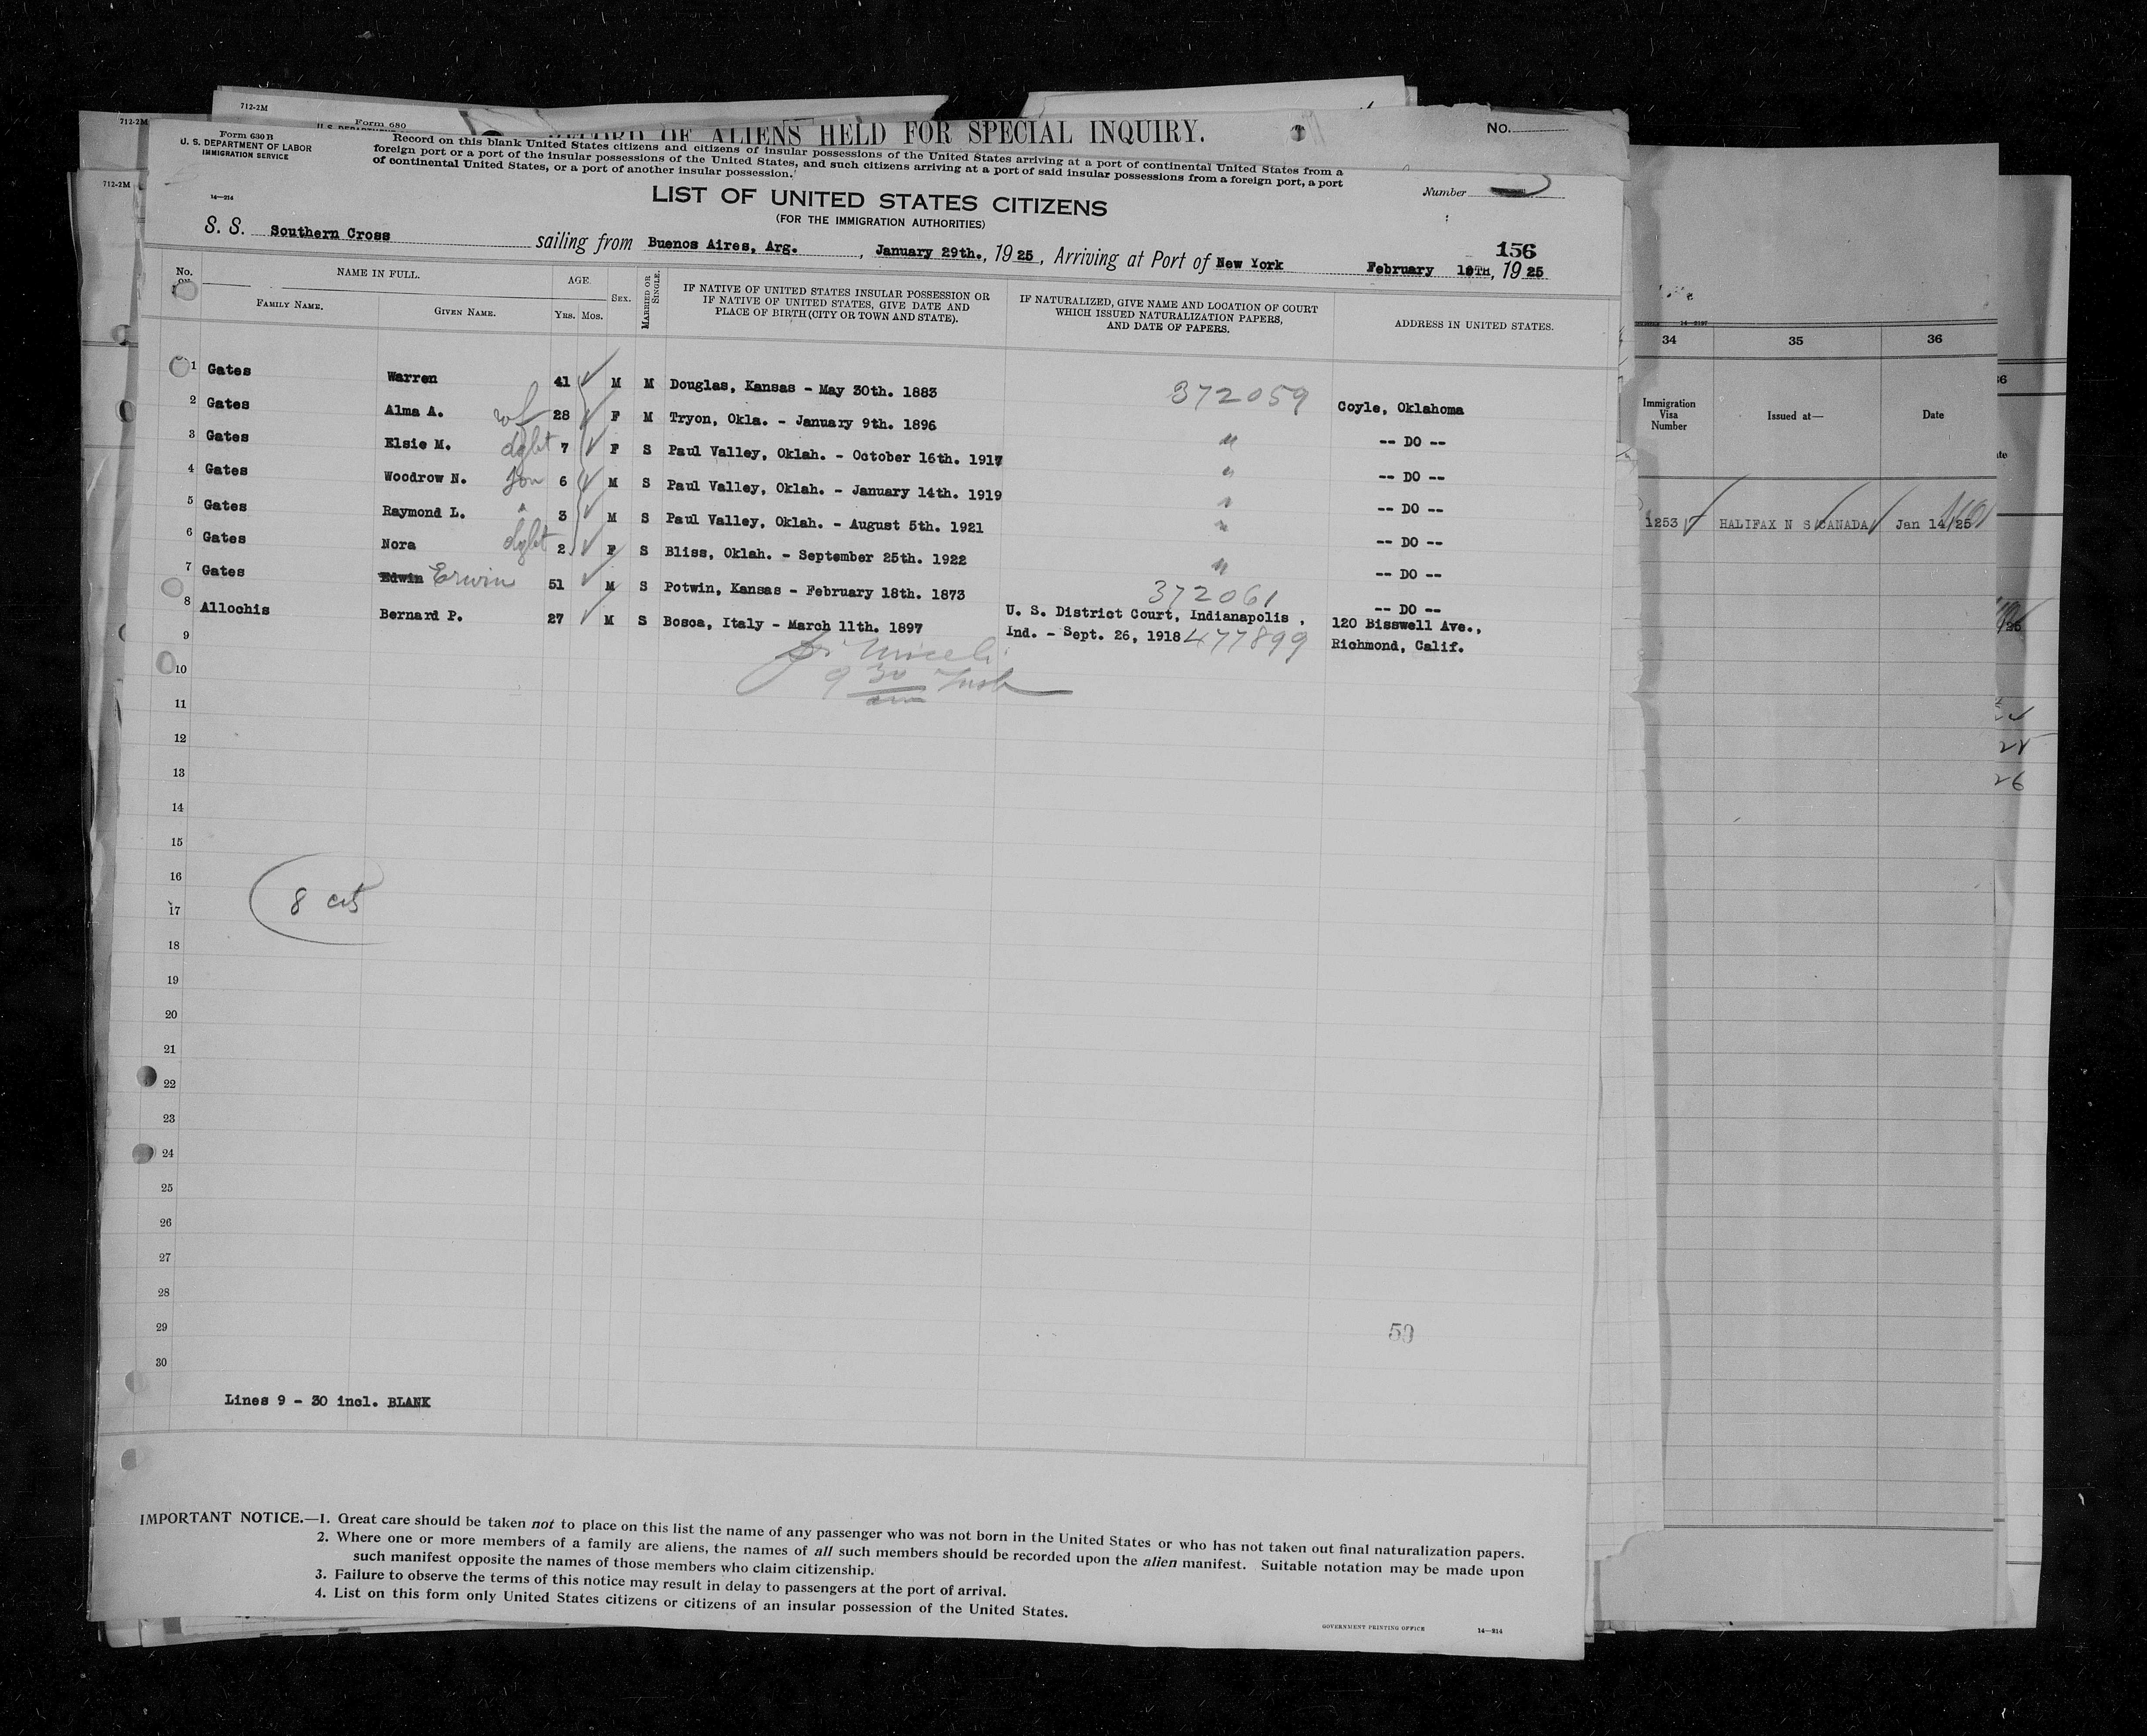 712-2M
712-2M
712-2M
Form 680
RECORD OF ALIENS HELD FOR SPECIAL INQUIRY.
No.
Form 630 B
U. S. DEPARTMENT OF LABOR
IMMIGRATION SERVICE
Record on this blank United States citizens and citizens of insular possessions of the United States arriving at a port of continental United States from a
foreign port or a port of the insular possessions of the United States, and such citizens arriving at a port of said insular possessions from a foreign port, a port
of continental United States, or a port of another insular possession.
14—214
Number
LIST OF UNITED STATES CITIZENS
(FOR THE IMMIGRATION AUTHORITIES)
156
S. S. Southern Cross sailing from Buenos Aires, Arg., January 29th., 1925, Arriving at Port of New York February TH, 1925
No.
NAME IN FULL.
FAMILY NAME.
GIVEN NAME.
AGE.
YRS. MOS.
SEX.
MARRIED OR SINGLE.
IF NATIVE OF UNITED STATES INSULAR POSSESSION OR
IF NATIVE OF UNITED STATES, GIVE DATE AND
PLACE OF BIRTH (CITY OR TOWN AND STATE).
IF NATURALIZED, GIVE NAME AND LOCATION OF COURT
WHICH ISSUED NATURALIZATION PAPERS,
AND DATE OF PAPERS.
ADDRESS IN UNITED STATES.
1 Gates Warren 41 ✓ M M Douglas, Kansas - May 30th. 1883 372059 Coyle, Oklahoma
2 Gates Alma A. wf 28 ✓ F M Tryon, Okla. - January 9th. 1896 " -- DO --
3 Gates Elsie M. dght 7 ✓ F S Paul Valley, Oklah. - October 16th. 1917 " -- DO --
4 Gates Woodrow N. son 6 ✓ M S Paul Valley, Oklah. - January 14th. 1919 " -- DO --
5 Gates Raymond L. " 3 ✓ M S Paul Valley, Oklah. - August 5th. 1921 " -- DO --
6 Gates Nora dght 2 ✓ F S Bliss, Oklah. - September 25th. 1922 " -- DO --
7 Gates Edwin Erwin 51 ✓ M S Potwin, Kansas - February 18th. 1873 372061 -- DO --
8 Allochis Bernard P. 27 ✓ M S Bosca, Italy - March 11th. 1897 U. S. District Court, Indianapolis, 120 Bisswell Ave.,
9 Ind. - Sept. 26, 1918 477899 Richmond, Calif.
10 9 30
11
12
13
14
15
16
17 8 cits
18
19
20
21
22
23
24
25
26
27
28
29 59
30
Lines 9 - 30 incl. BLANK
IMPORTANT NOTICE.—1. Great care should be taken not to place on this list the name of any passenger who was not born in the United States or who has not taken out final naturalization papers.
2. Where one or more members of a family are aliens, the names of all such members should be recorded upon the alien manifest. Suitable notation may be made upon
such manifest opposite the names of those members who claim citizenship.
3. Failure to observe the terms of this notice may result in delay to passengers at the port of arrival.
4. List on this form only United States citizens or citizens of an insular possession of the United States.
GOVERNMENT PRINTING OFFICE 14—214
34 35 36
Immigration
Visa
Number
Issued at—
Date
1253 ✓ HALIFAX N S CANADA ✓ Jan 14/25
26